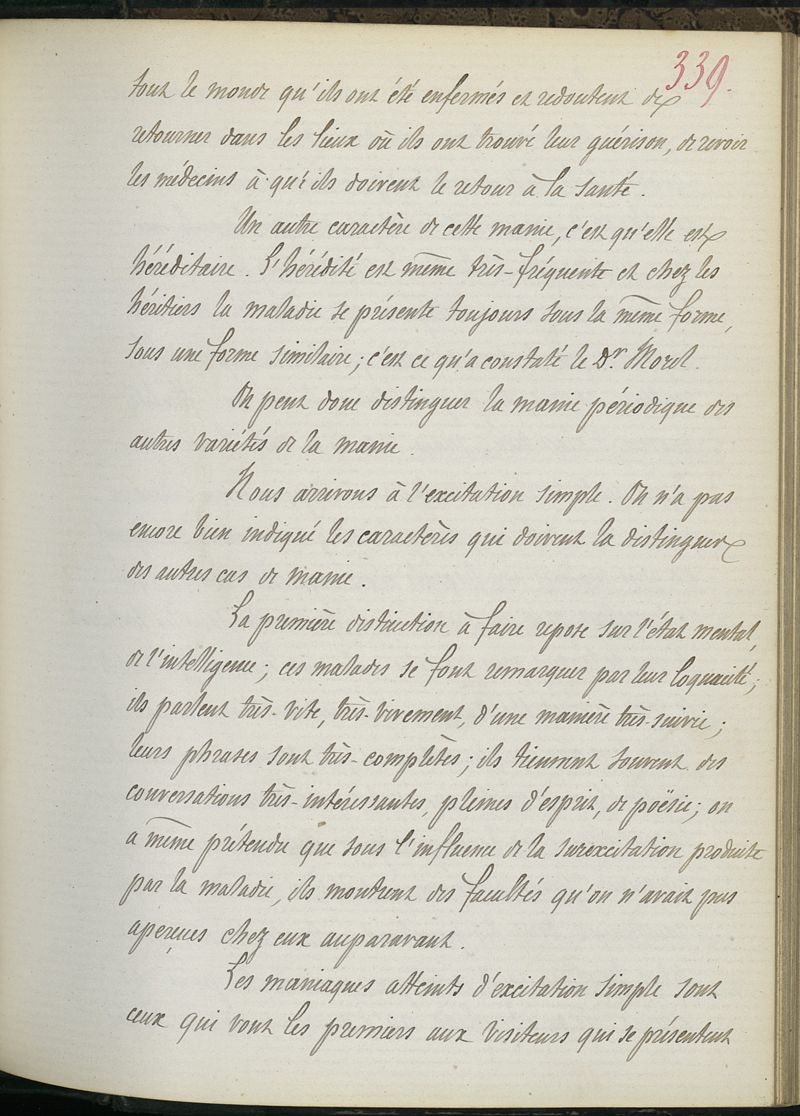 339.
tout le monde qu'ils ont été enfermés et redoutent de
retourner dans les lieux où ils ont trouvé leur guérison, de revoir
les médecins à qui ils doivent le retour à la santé.
Un autre caractère de cette manie, c'est qu'elle est
héréditaire. L'hérédité est même très-fréquente et chez les
héritiers la maladie se présente toujours sous la même forme,
sous une forme similaire; c'est ce qu'a constaté le Dr Morel.
On peut donc distinguer la manie périodique des
autres variétés de la manie.
Nous arrivons à l'excitation simple. On n'a pas
encore bien indiqué les caractères qui doivent la distinguer
des autres cas de manie.
La première distinction à faire repose sur l'état mental,
de l'intelligence; ces malades se font remarquer par leur loquacité;
ils parlent très-vite, très-vivement, d'une manière très-suivie;
leurs phrases sont très-complètes; ils tiennent souvent des
conversations très-intéressantes, pleines d'esprit, de poësie; on
a même prétendu que sous l'influence de la surexcitation produite
par la maladie, ils montrent des facultés qu'on n'avait pas
aperçues chez eux auparavant.
Les maniaques atteints d'excitation simple sont
ceux qui vont les premiers aux visiteurs qui se présentent